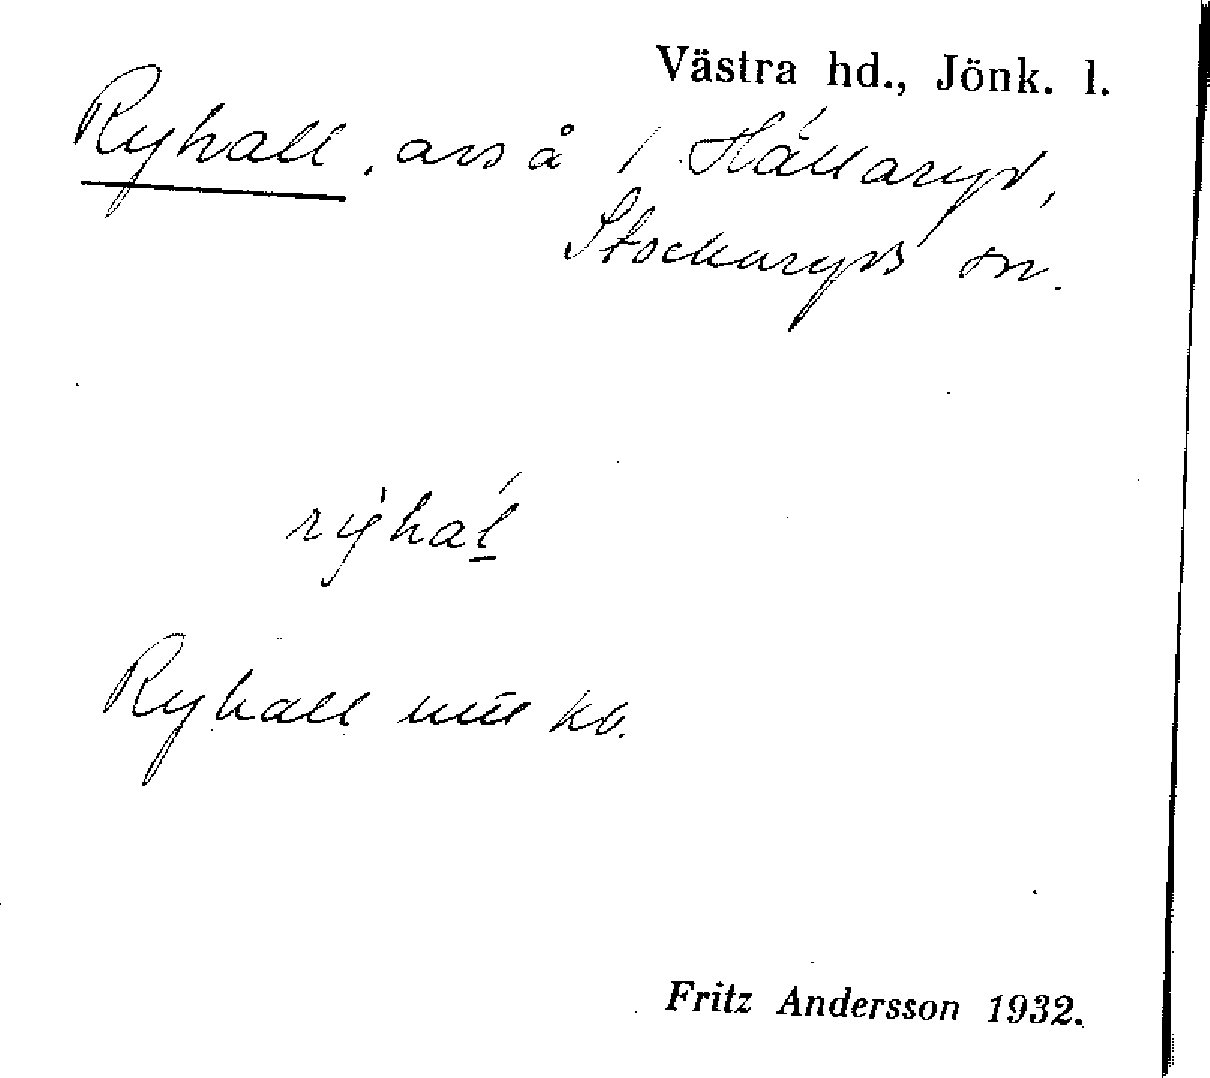 Västra hd., Jönk. l.
Ryhall, avs å 1 Hállaryd,
Stockaryds sn.
Ryhall
Fritz Andersson 1932.